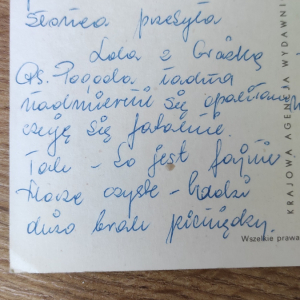 słońca przesyła
Lola z Grażką
Ps. Pogoda ładna
nadmiernie się opaliłam
czuję się fatalnie.
Tak – to jest fajnie
Morze czyste – ludzi
dużo brak pieniędzy.
KRAJOWA AGENCJA WYDAWNI
Wszelkie prawa